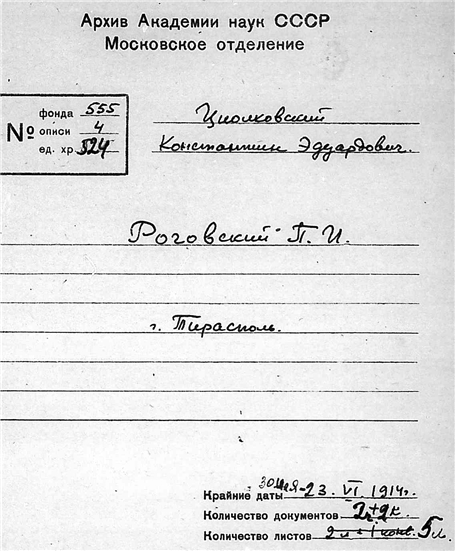 Архив Академии наук СССР
Московское отделение
№ фонда 555
описи 4
ед. хр. 524
Циолковский
Константин Эдуардович.
Роговский П. И.
г. Тирасполь.
Крайние даты 30 мая-23. VI. 1914г.
Количество документов 2+2к.
Количество листов 2л+1 конв. 5л.